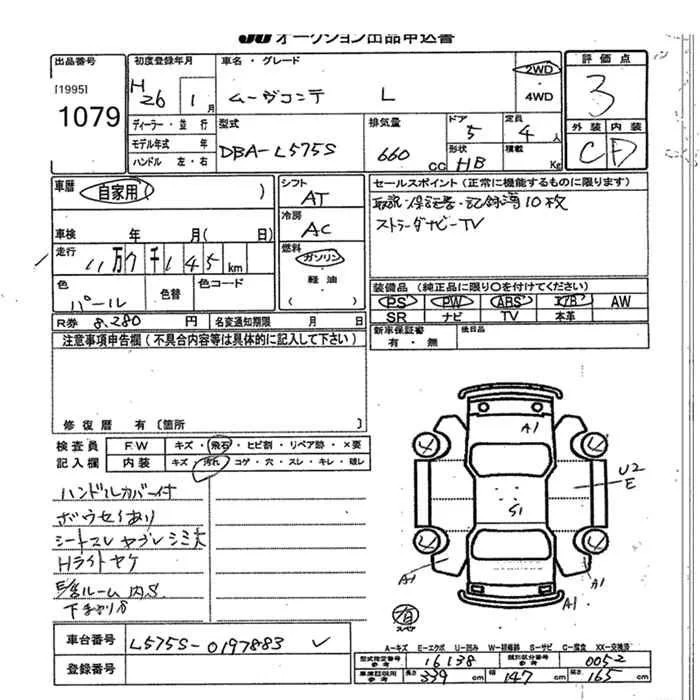 JU オークション出品申込書
出品番号
[1995]
1079
初度登録年月
H26 1月
ディーラー・並行
モデル年式 年
ハンドル 左・右
車名・グレード
ムーヴコンテ L
2WD
・4WD
型式
DBA-L575S
排気量
660 cc
ドア
5
形状
HB
定員
4人
積載
Kg
評価点
3
外装 内装
C D
車歴 自家用 ( )
車検 年 月( 日)
走行
11万7千145km
色
パール
色替
色コード
シフト
AT
冷房
AC
燃料
ガソリン
・
軽油
セールスポイント (正常に機能するものに限ります)
取説・保証書・記録簿10枚
ストラーダナビーTV
装備品 (純正品に限り〇を付けてください)
PS PW ABS エアB AW
SR ナビ TV 本革
新車保証書
有・無
後日品
R券 8,280 円
名変通知期限 月 日
注意事項申告欄(不具合内容等は具体的に記入して下さい)
修復歴 有〔箇所 〕
検査員
記入欄
F.W キズ・飛石・ヒビ割・リペア跡・×要
内装 キズ・汚れ・コゲ・穴・スレ・キレ・破レ
ハンドルカバー付
ボウセイあり
シートスレ ヤブレ シミ大
Hライトヤケ
内S
下まわりサ
A1
4
4
U2
E
S1
4
4
A1
A1
A1
有
スペア
A―キズ E―エクボ U―凹み W―補修跡 S―サビ C―腐食 XX―交換済
車台番号
L575S-0197883
登録番号
型式指定番号
参考
16138
類別区分番号
参考
0052
車庫証明用
参考
長さ 339cm
幅 147cm
高さ 165cm